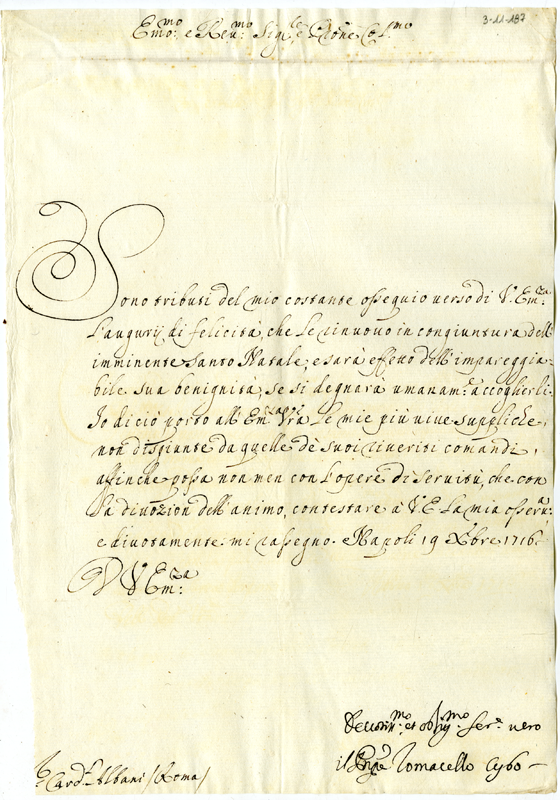 3-11-187
Em.mo e Rev.mo Sig.re e Prone Col.mo
Sono tributi del mio costante ossequio verso di V. Em.za
l'augurij di felicità, che le rinuovo in congiuntura dell'
imminente Santo Natale; e sarà effetto dell'impareggia-
bile sua benignità, se si degnarà umanam.e accoglierli.
Io di ciò porto all'Em.za Vra le mie più vive suppliche,
non disgiunte da quelle de suoi riveriti comandi,
affinche possa non men con l'opere di servitù, che con
la divozion dell'animo, contestare à V. E. la mia osserv.a
e divotamente mi rassegno. Napoli 19 Xbre 1716
D V. Em.za
Devotiss.mo et obblig.mo Ser.e vero
il Pnpe Tomacello Cybo
Card.l Albani / Roma /